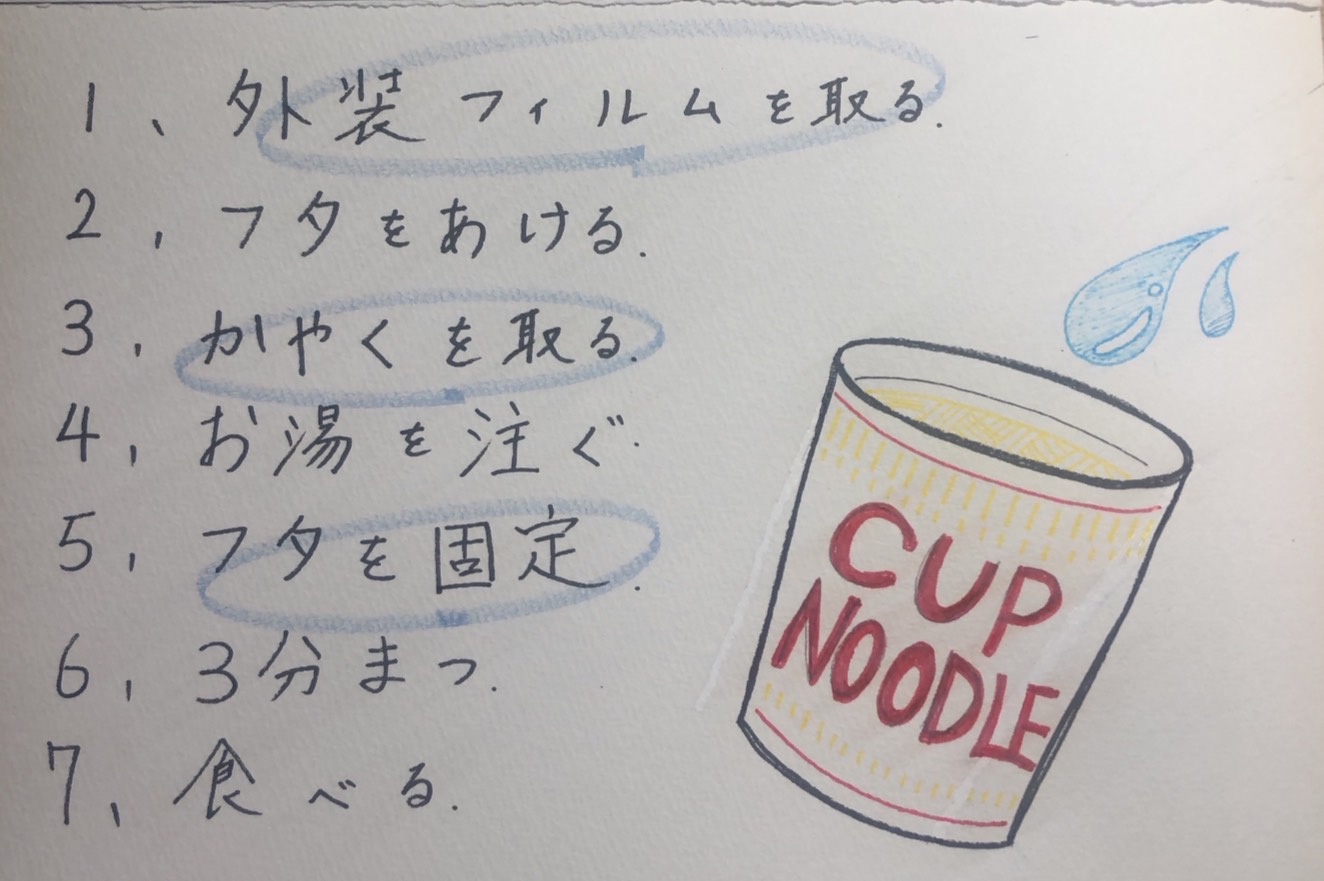 1、外装フィルムを取る.
2、フタをあける.
3、かやくを取る.
4、お湯を注ぐ.
5、フタを固定.
6、3分まつ.
7、食べる.
CUP
NOODLE